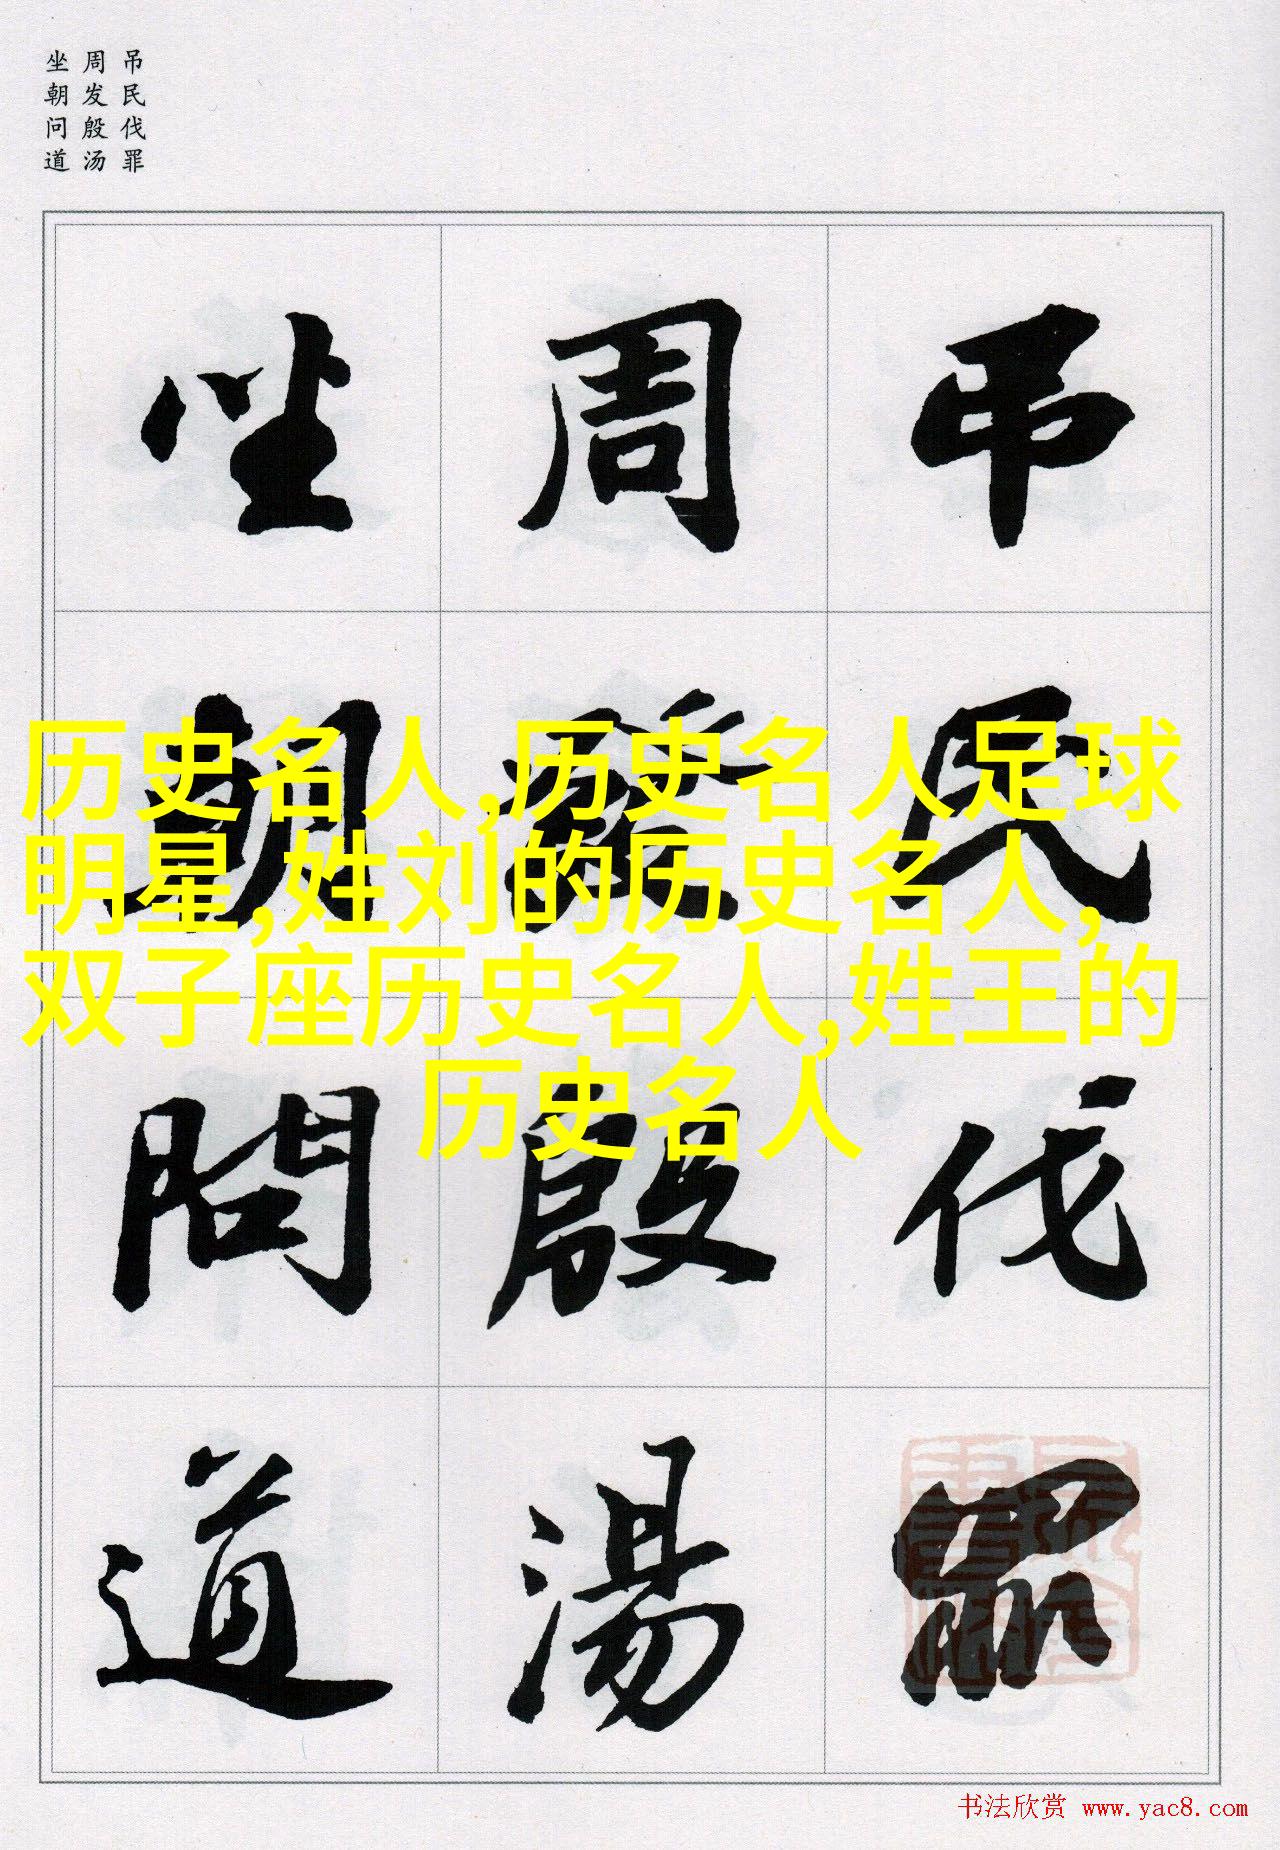 吊民伐罪
周发殷汤
坐朝问道
吊民伐罪
周發殷湯
坐朝問道
历史名人,历史名人足球
明星,姓刘的历史名人,
双子座历史名人,姓王的
历史名人
书法欣赏 www.yac8.com